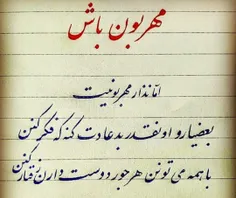 مهربون باش
امّا نذار مهربونیت
بعضیارو اونقدر بد عادت کنه که فکر کنن
با همه می تونن هرجور دوست دارن رفتار کنن